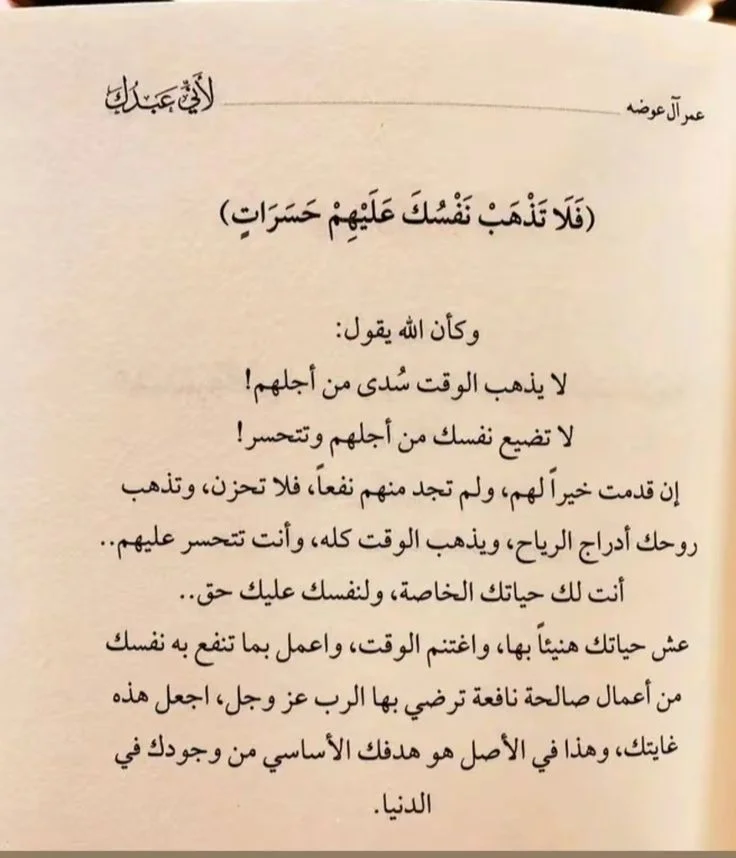 عمر آل عوضه لأنّي عَبدُك
(فَلَا تَذْهَبْ نَفْسُكَ عَلَيْهِمْ حَسَرَاتٍ)
وكأن الله يقول:
لا يذهب الوقت سُدى من أجلهم!
لا تضيع نفسك من أجلهم وتتحسر!
إن قدمت خيراً لهم، ولم تجد منهم نفعاً، فلا تحزن، وتذهب
روحك أدراج الرياح، ويذهب الوقت كله، وأنت تتحسر عليهم..
أنت لك حياتك الخاصة، ولنفسك عليك حق..
عش حياتك هنيئاً بها، واغتنم الوقت، واعمل بما تنفع به نفسك
من أعمال صالحة نافعة ترضي بها الرب عز وجل، اجعل هذه
غايتك، وهذا في الأصل هو هدفك الأساسي من وجودك في
الدنيا.